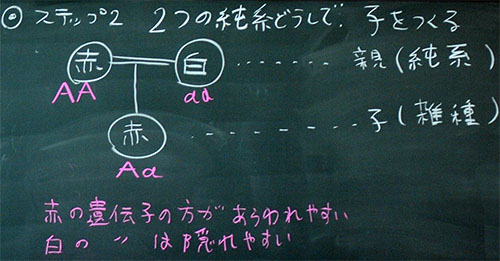 ◎ ステップ2 2つの純系どうしで、子をつくる
赤 白 ‥‥‥ 親(純系)
AA aa
赤 ‥‥‥ 子(雑種)
Aa
赤の遺伝子の方があらわれやすい
白の 〃 は隠れやすい